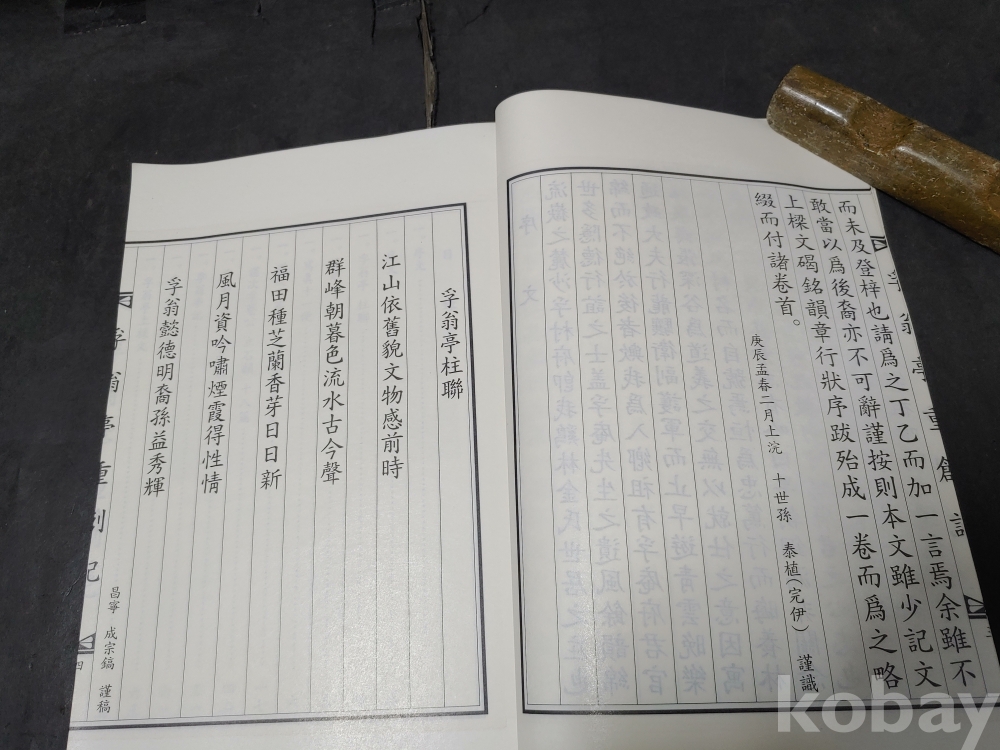 而未及登梓也請爲之丁乙而加一言焉余雖不
敢當以爲後裔亦不可辭謹按則本文雖少記文
上樑文碣銘韻章行狀序跋殆成一卷而爲之略
綴而付諸卷首。
庚辰孟春二月上浣 十世孫 泰植(完伊) 謹識
孚翁亭柱聯
江山依舊貌文物感前時
群峰朝暮色流水古今聲
福田種芝蘭香芽日日新
風月資吟嘯煙霞得性情
孚翁懿德明裔孫益秀輝
昌寧 成宗鎬 謹稿
孚翁亭重創記
四
kobay